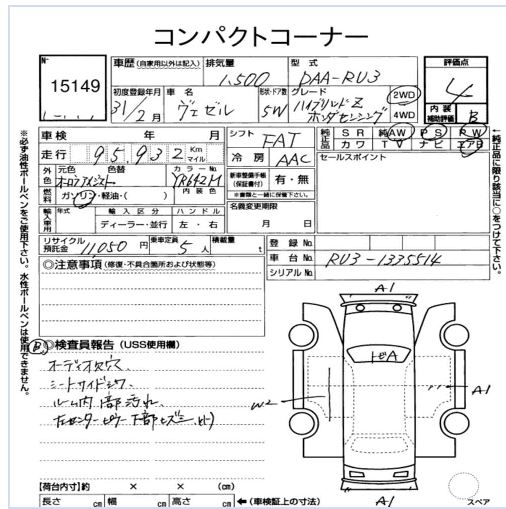 コンパクトコーナー
No.
15149
車歴 (自家用以外は記入)
排気量
1.500
型式
DAA-RU3
評価点
4
初度登録年月
31/2月
車名
ヴェゼル
形状・ドア数
5W
グレード
ハイブリッドZ
ホンダセンシング
2WD
4WD
内装
補助評価
B
車検 年 月
シフト
FAT
純正品
SR 純AW PS PW
カワ TV ナビ エアB
走行 95,932 Km マイル
冷房 AAC
セールスポイント
外色
元色 色替
カラーNo.
YR642M
内装色
新車整備手帳
(保証書付)
有・無
※書類と一緒に保管下さい。
燃料
ガソリン・軽油・( )
名義変更期限
月 日
輸入車用
年式
輸入区分
ディーラー・並行
ハンドル
左・右
リサイクル
預託金
11,050 円
乗車定員
5人
積載量
t
登録No.
車台No.
RU3-1335514
シリアルNo.
◎注意事項 (修復・不具合箇所および状態等)
◎検査員報告 (USS使用欄)
B
オーディオ欠穴
シートサイドシワ
ルーム内1部汚れ
【荷台内寸】約 × × (cm)
長さ cm 幅 cm 高さ cm ←(車検証上の寸法)
A1
トビA
A1
W2
A1
スペア
※必ず油性ボールペンをご使用下さい。水性ボールペンは使用できません。
←純正品に限り該当に○をつけて下さい。